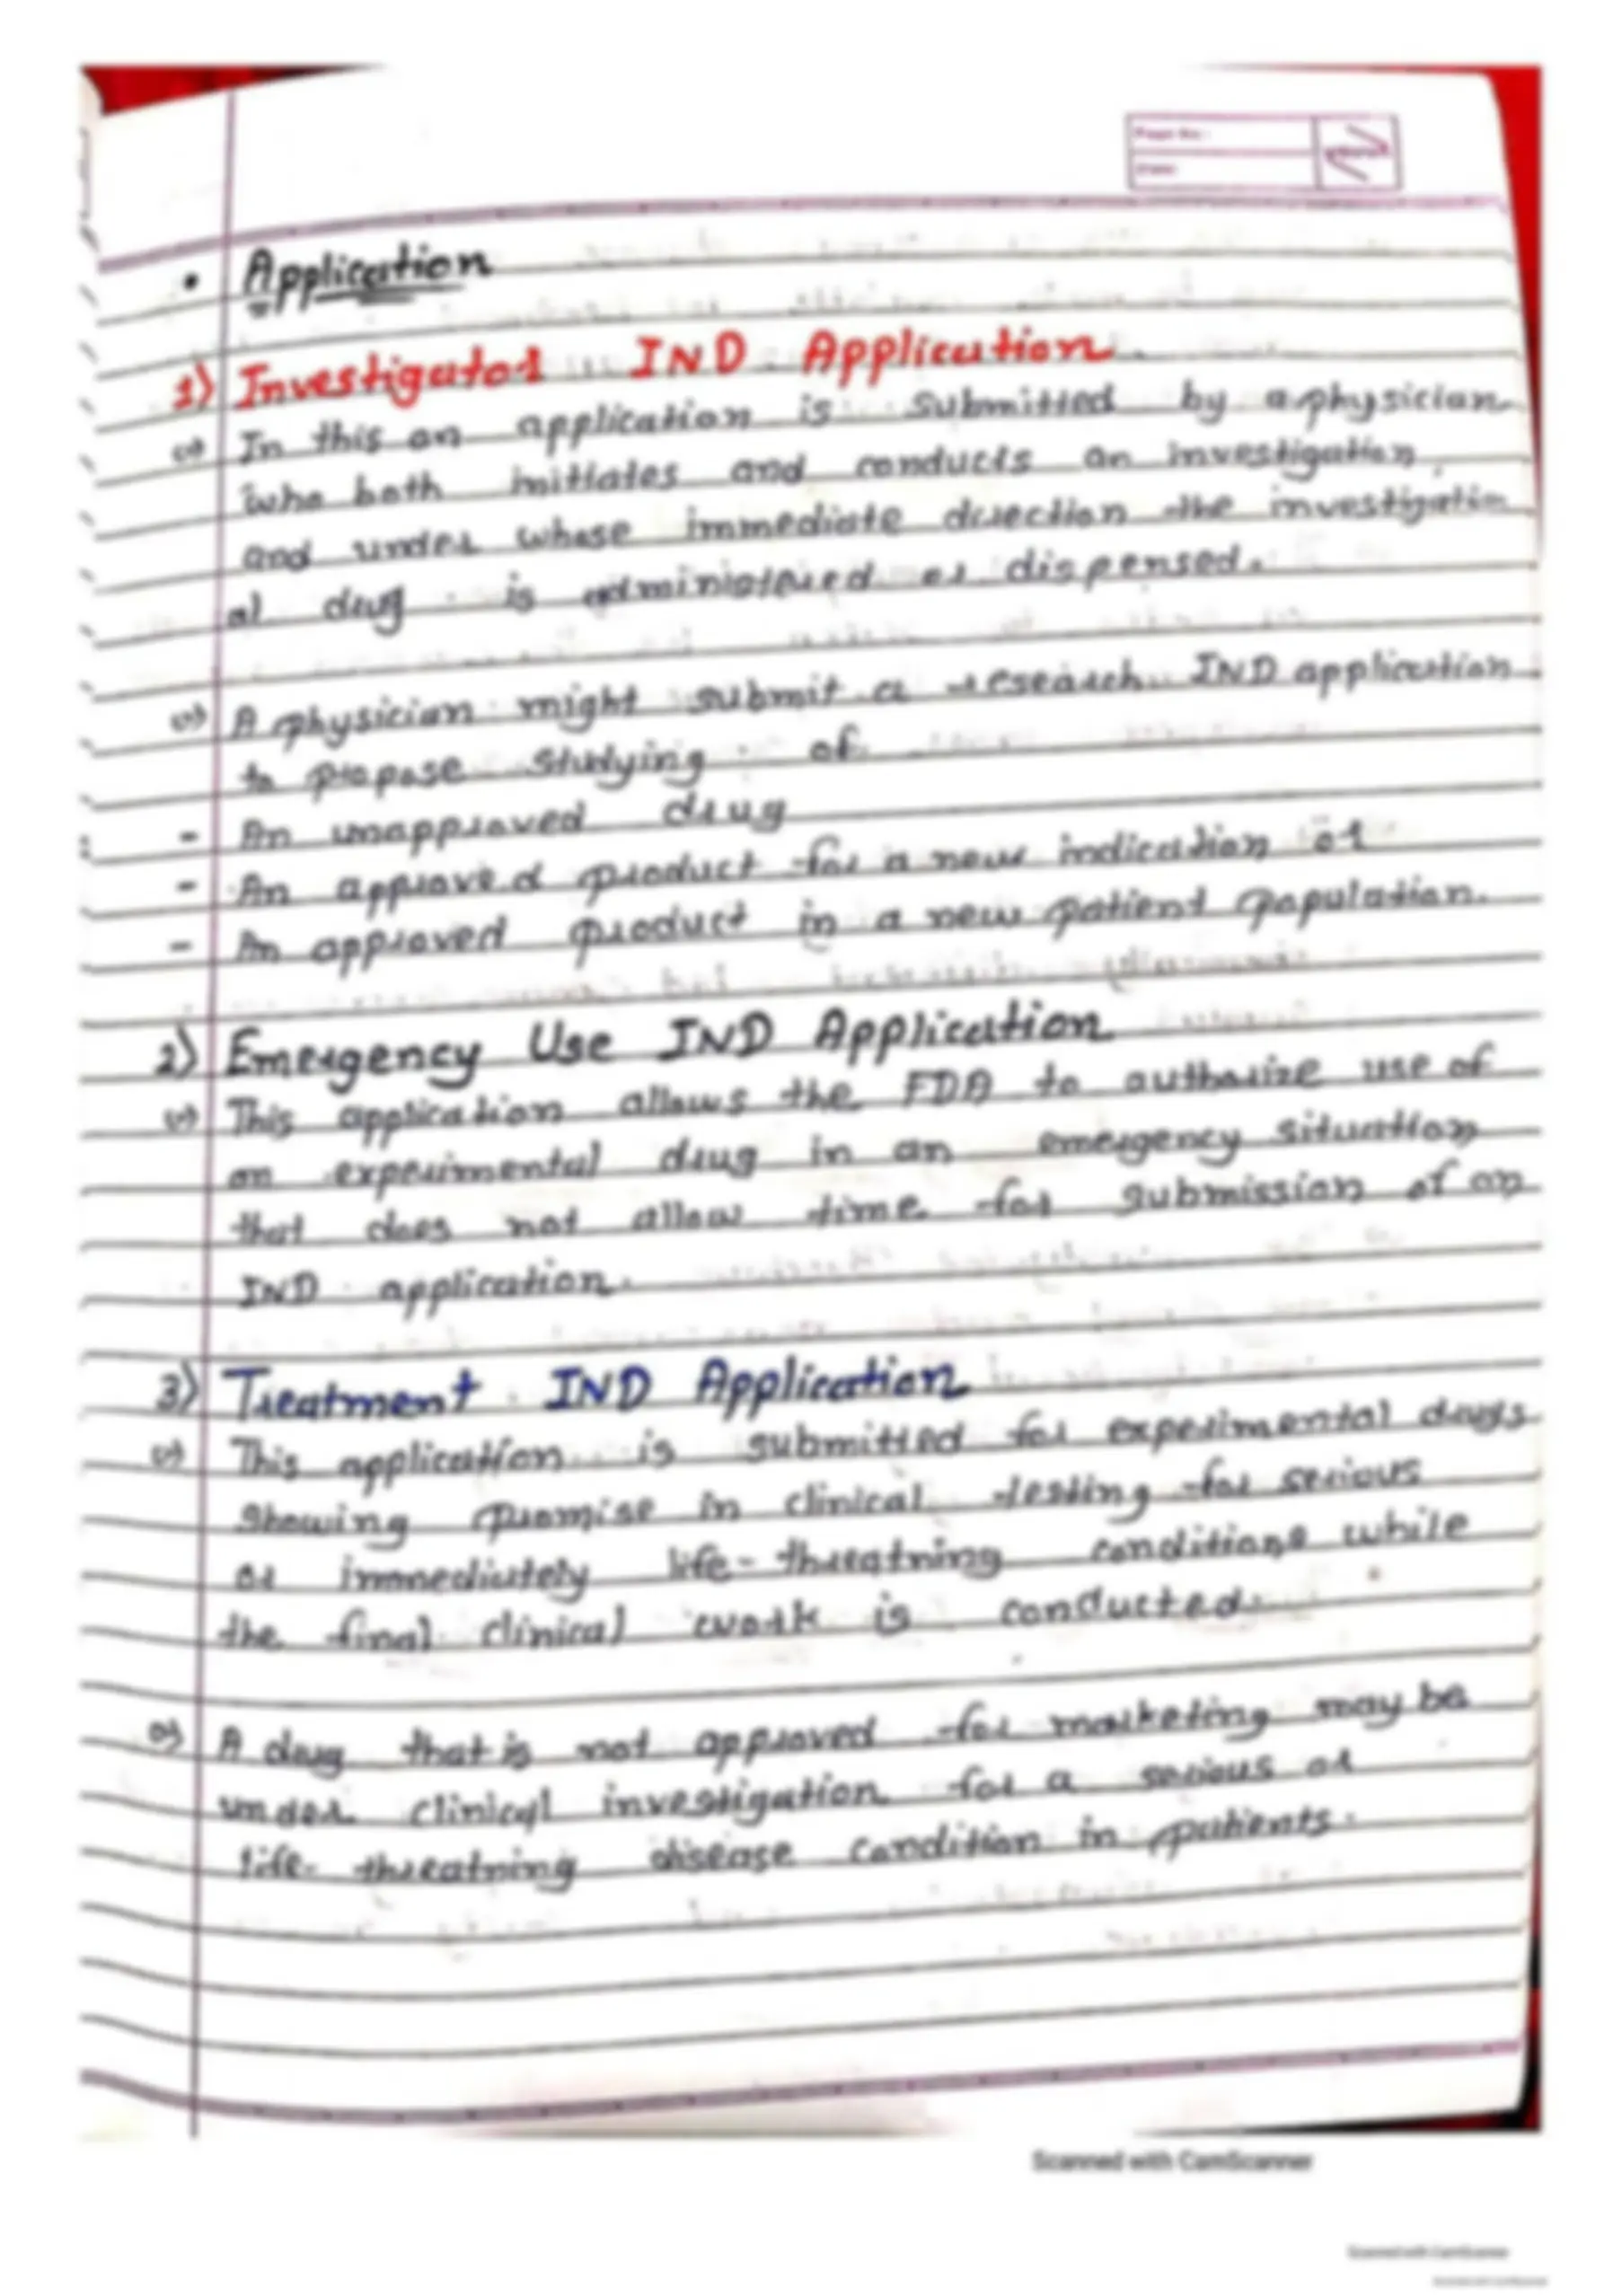 Page No :
Date:
• Application
1) Investigator IND Application.
=> In this an application is submitted by a physician
who both initiates and conducts an investigation,
and under whose immediate direction the investigation
al drug is administered or dispensed.
=> A physician might submit a research IND application
to propose studying of
- An unapproved drug
- An approved product for a new indication or
- An approved product in a new patient population.
2) Emergency Use IND Application
=> This application allows the FDA to authorize use of
an experimental drug in an emergency situation
that does not allow time for submission of an
IND application.
3) Treatment IND Application
=> This application is submitted for experimental drugs
showing promise in clinical testing for serious
or immediately life-threatning conditions while
the final clinical work is conducted.
=> A drug that is not approved for marketing may be
under clinical investigation for a serious or
life-threatning disease condition in patients.
Scanned with CamScanner
Scanned with CamScanner
Scanned with CamScanner